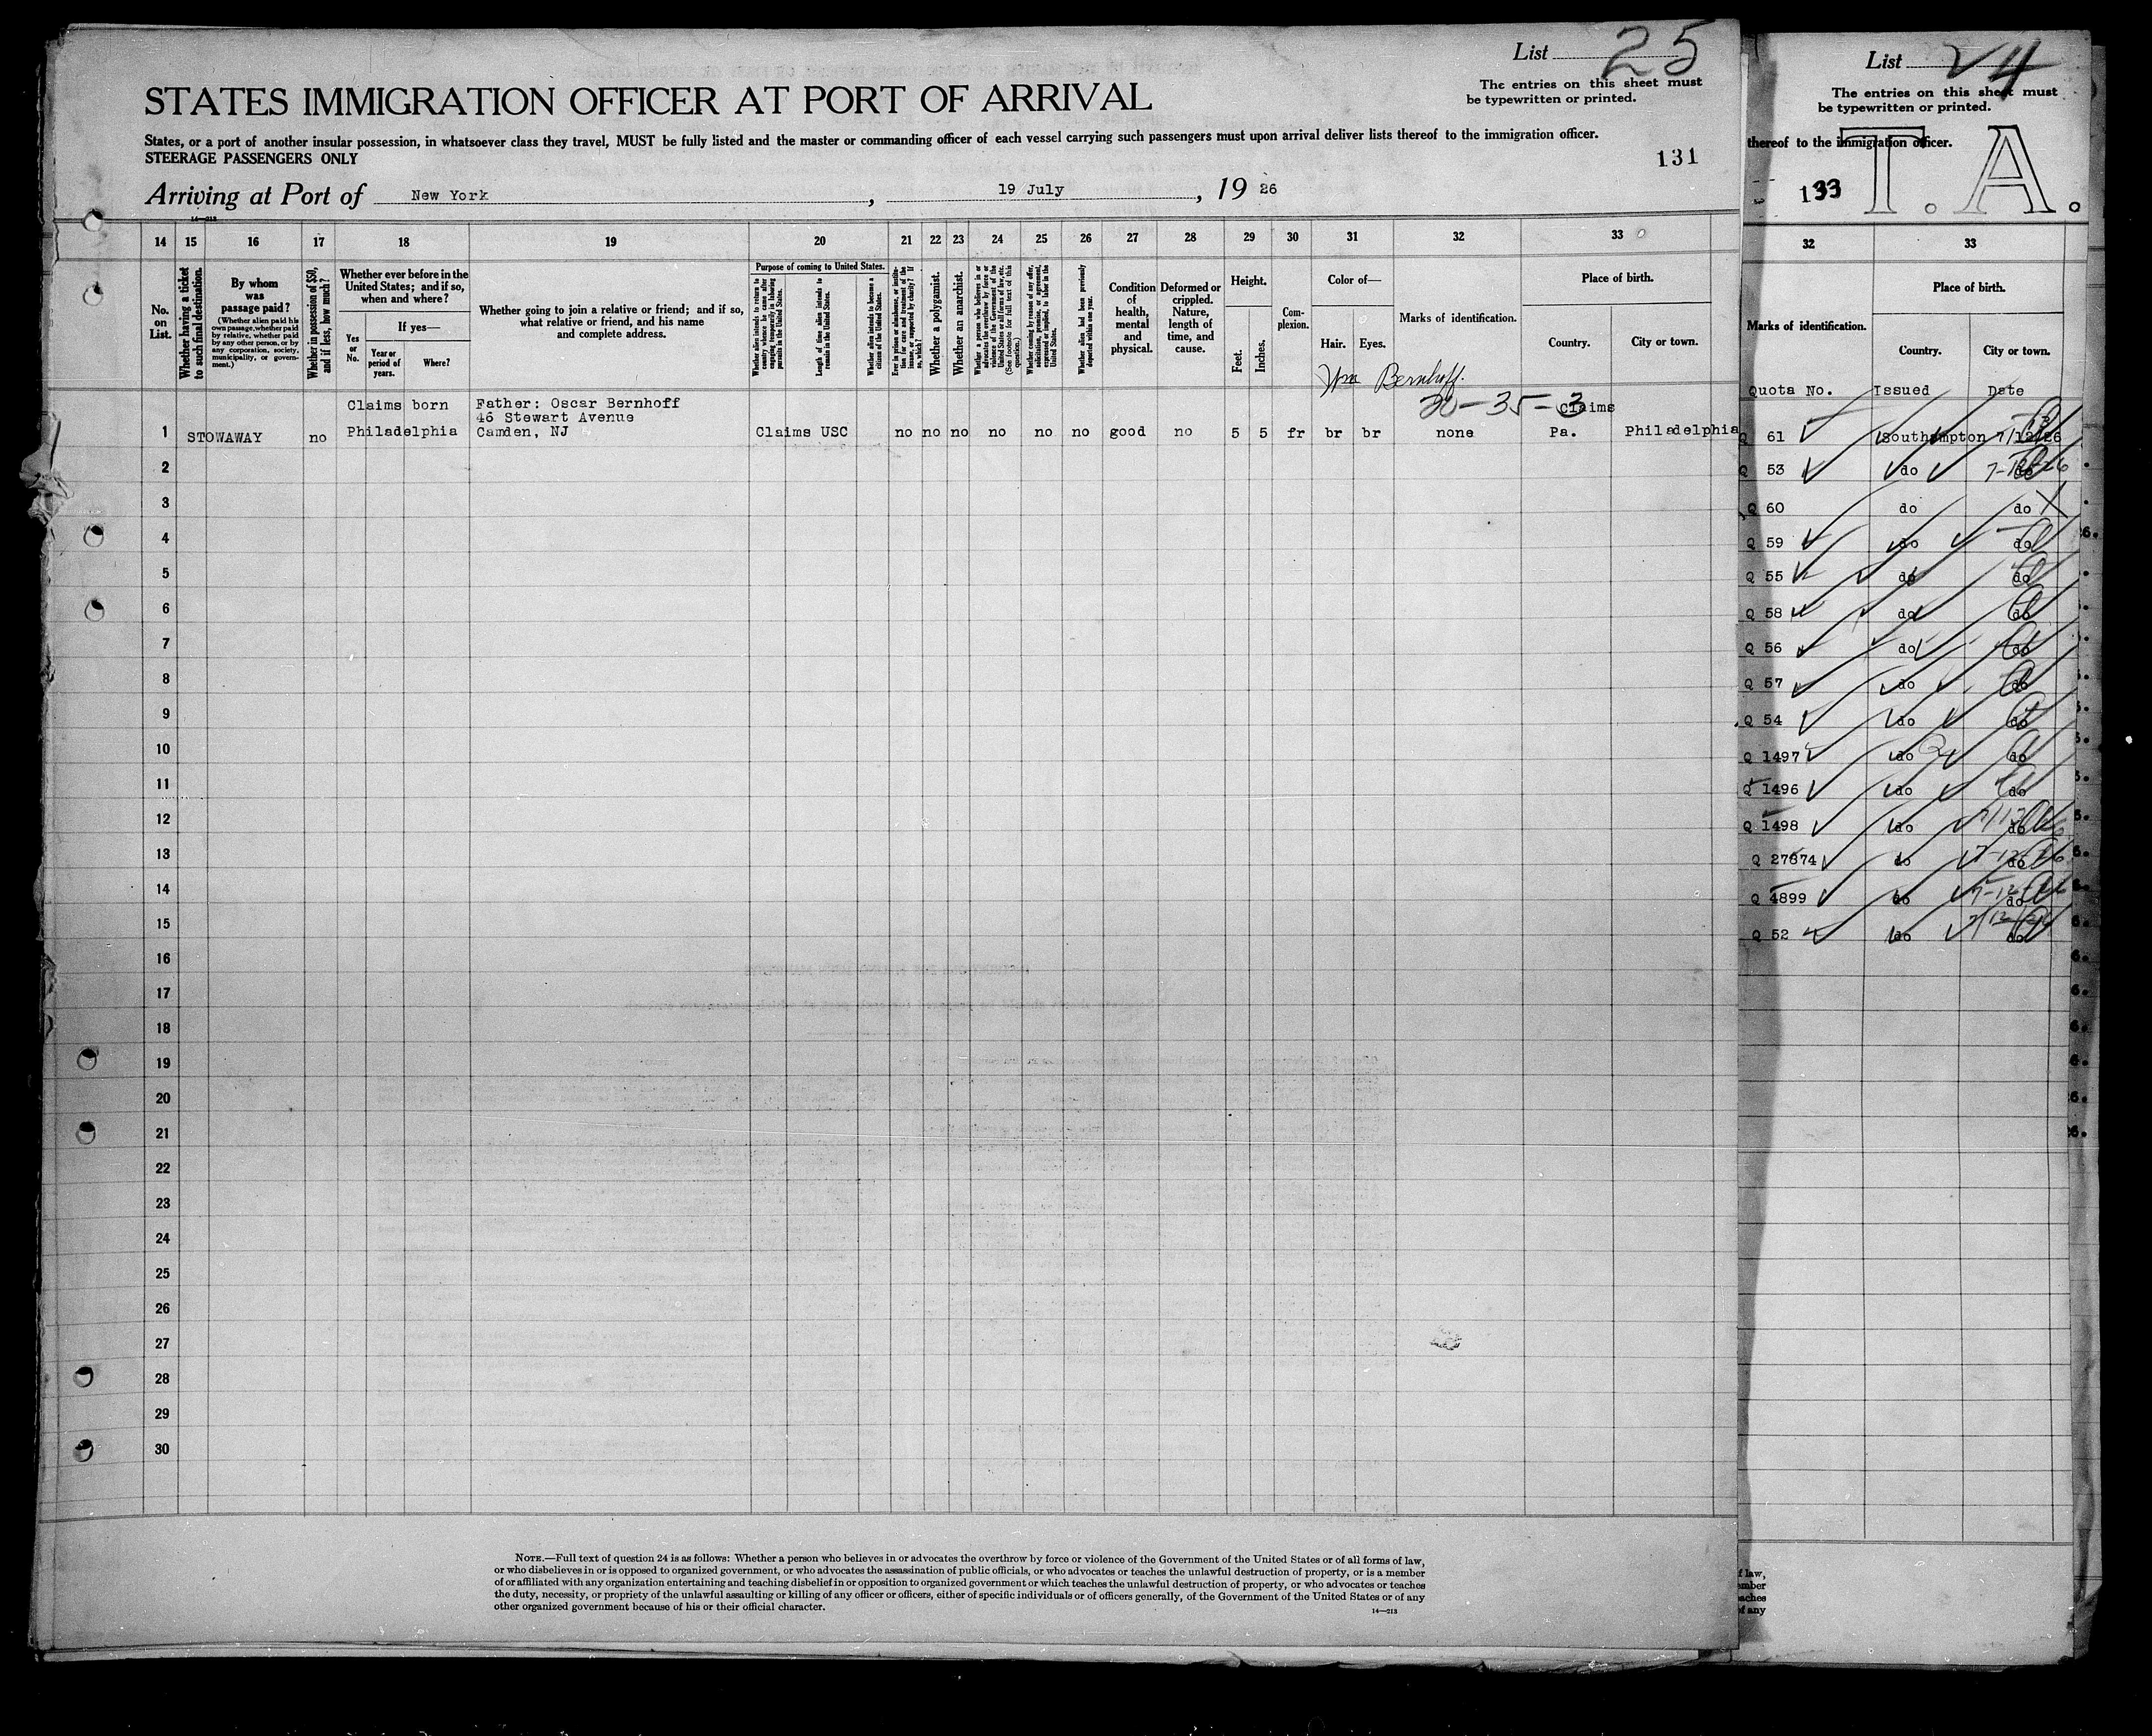 List 25
The entries on this sheet must
be typewritten or printed.
STATES IMMIGRATION OFFICER AT PORT OF ARRIVAL
States, or a port of another insular possession, in whatsoever class they travel, MUST be fully listed and the master or commanding officer of each vessel carrying such passengers must upon arrival deliver lists thereof to the immigration officer.
STEERAGE PASSENGERS ONLY
131
Arriving at Port of New York, 19 July, 19 26
14—213
14 15 16 17 18 19 20 21 22 23 24 25 26 27 28 29 30 31 32 33
No. on List.
Whether having a ticket to such final destination.
By whom was passage paid?
(Whether alien paid his own passage, whether paid by relative, whether paid by any other person, or by any corporation, society, municipality, or government.)
Whether in possession of $50, and if less, how much?
Whether ever before in the United States; and if so, when and where?
Yes or No.
If yes—
Year or period of years.
Where?
Whether going to join a relative or friend; and if so, what relative or friend, and his name and complete address.
Purpose of coming to United States.
Whether alien intends to return to country whence he came after engaging temporarily in laboring pursuits in the United States.
Length of time alien intends to remain in the United States.
Whether alien intends to become a citizen of the United States.
Ever in prison or almshouse, or institution for care and treatment of the insane, or supported by charity? If so, which?
Whether a polygamist.
Whether an anarchist.
Whether a person who believes in or advocates the overthrow by force or violence of the Government of the United States or all forms of law, etc. (See footnote for full text of this question.)
Whether coming by reason of any offer, solicitation, promise, or agreement, expressed or implied, to labor in the United States.
Whether alien had been previously deported within one year.
Condition of health, mental and physical.
Deformed or crippled. Nature, length of time, and cause.
Height.
Feet.
Inches.
Complexion.
Color of—
Hair.
Eyes.
Marks of identification.
Place of birth.
Country.
City or town.
Wm Bernhoff.
30-35-3
Claims born Father: Oscar Bernhoff Claims
46 Stewart Avenue
1 STOWAWAY no Philadelphia Camden, NJ Claims USC no no no no no no good no 5 5 fr br br none Pa. Philadelphia
2
3
4
5
6
7
8
9
10
11
12
13
14
15
16
17
18
19
20
21
22
23
24
25
26
27
28
29
30
NOTE.—Full text of question 24 is as follows: Whether a person who believes in or advocates the overthrow by force or violence of the Government of the United States or of all forms of law,
or who disbelieves in or is opposed to organized government, or who advocates the assassination of public officials, or who advocates or teaches the unlawful destruction of property, or is a member
of or affiliated with any organization entertaining and teaching disbelief in or opposition to organized government or which teaches the unlawful destruction of property, or who advocates or teaches
the duty, necessity, or propriety of the unlawful assaulting or killing of any officer or officers, either of specific individuals or of officers generally, of the Government of the United States or of any
other organized government because of his or their official character.
14—213
List 24
The entries on this sheet must
be typewritten or printed.
thereof to the immigration officer.
133
T. A.
32 33
Marks of identification.
Place of birth.
Country.
City or town.
Quota No. Issued Date
Q 61 Southampton 7/12/26
Q 53 do do
Q 60 do do
Q 59 do do
Q 55 do do
Q 58 do do
Q 56 do do
Q 57 do do
Q 54 do do
Q 1497 do do
Q 1496 do do
Q 1498 do do
Q 27874 do do
Q 4899 do do
Q 52 do do
f law,
ember
eaches
of any